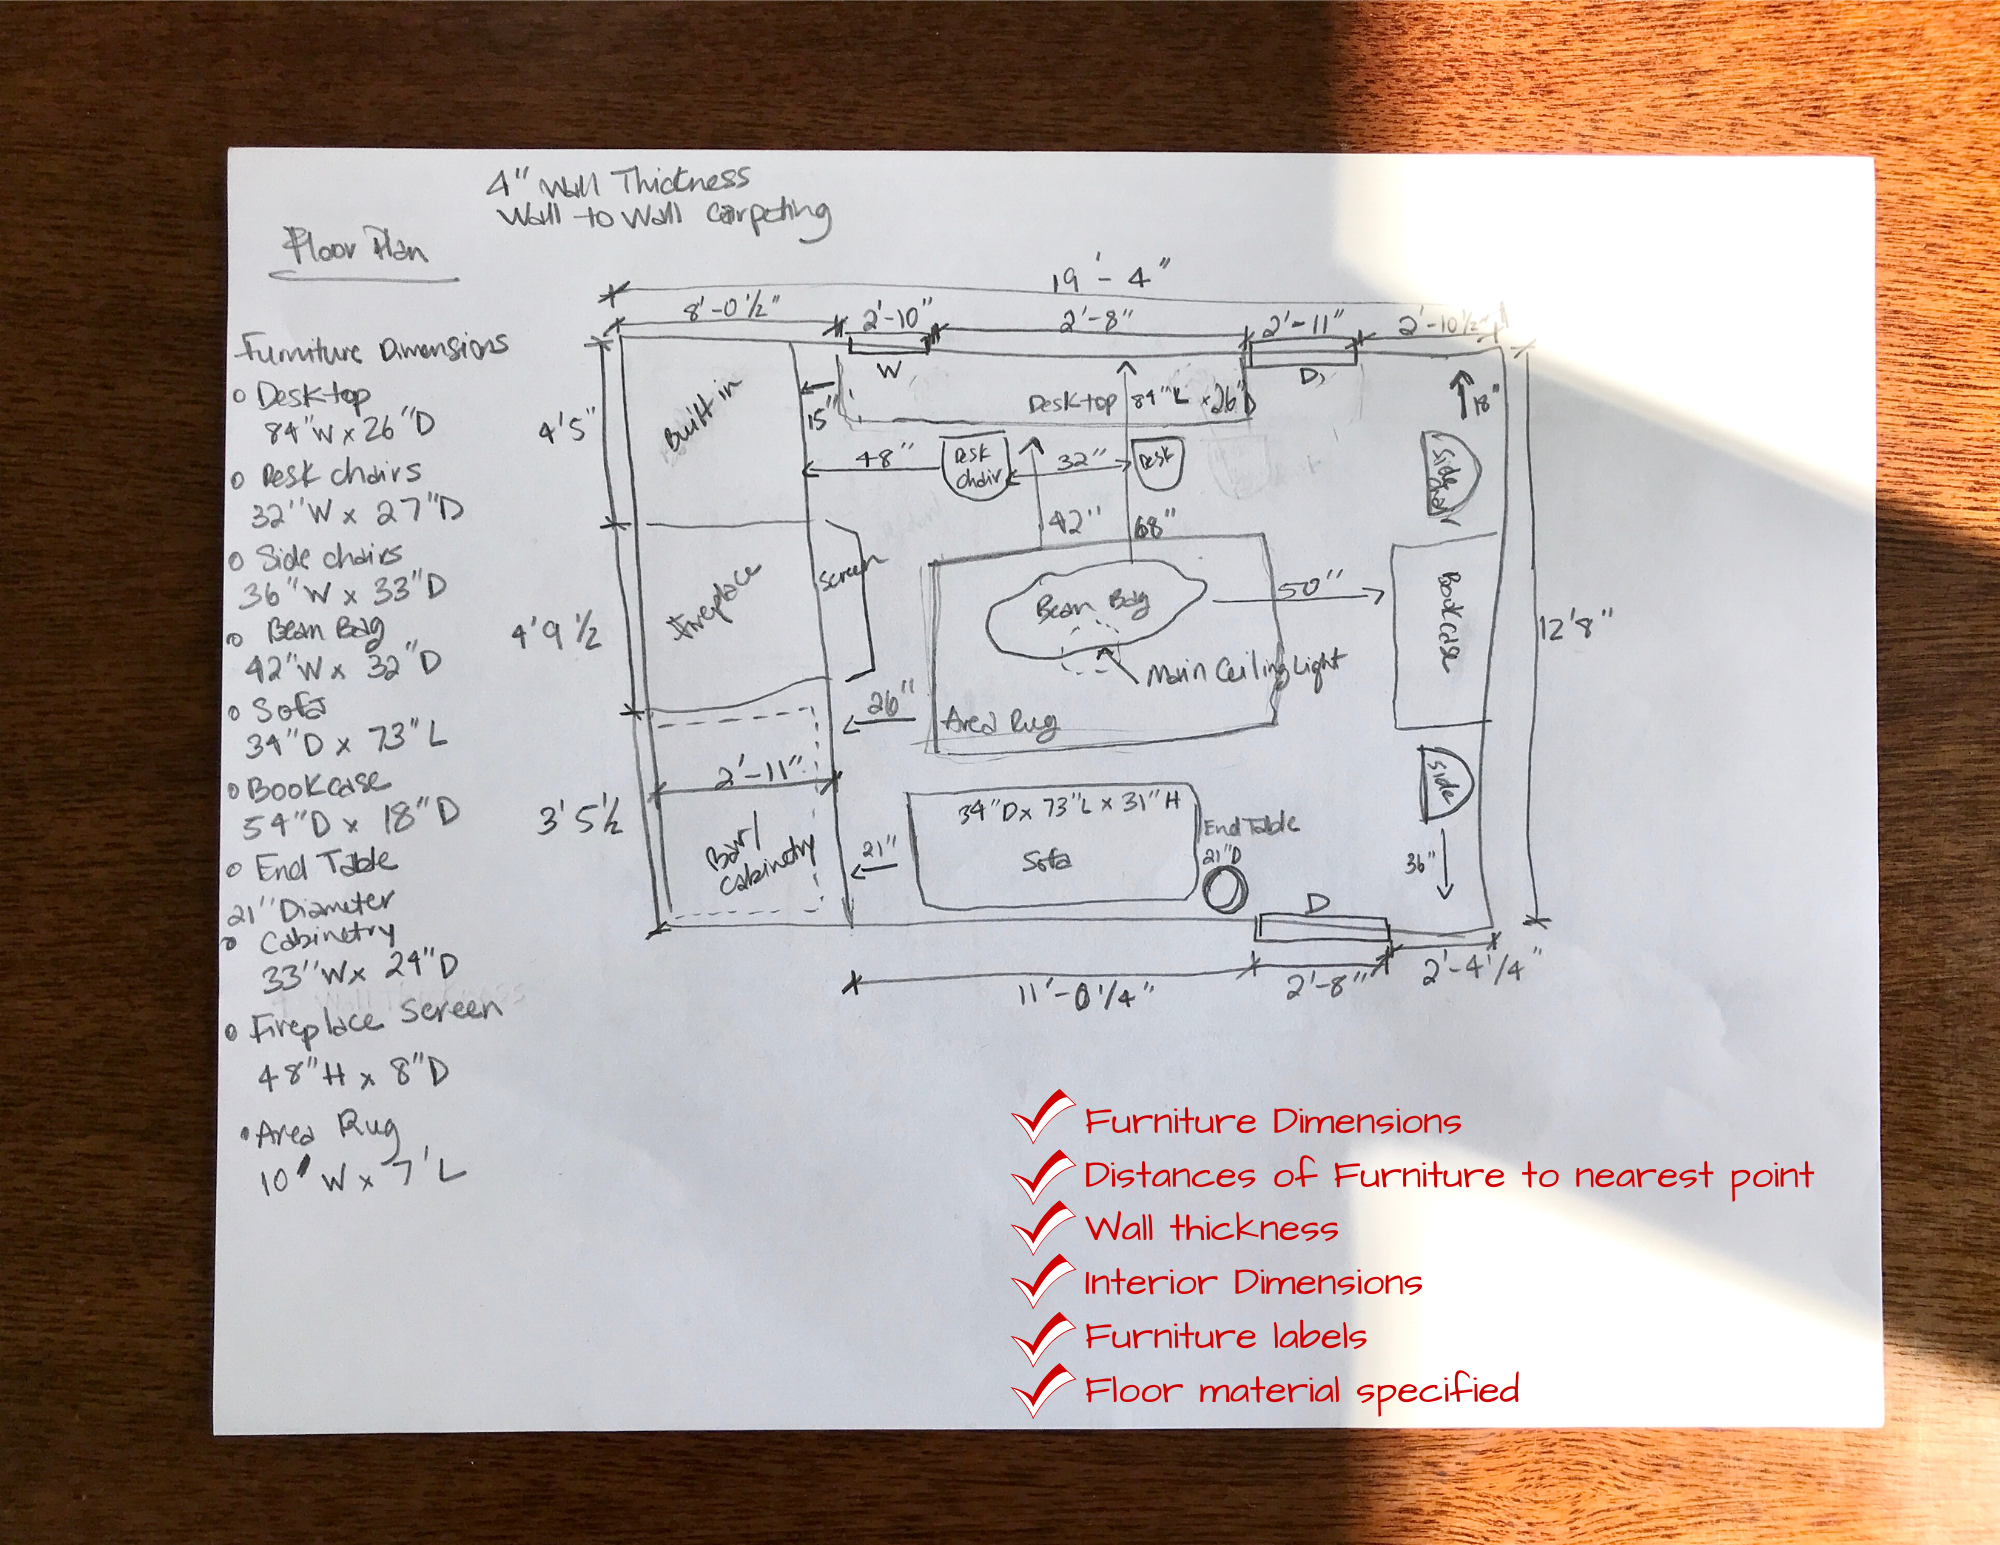 4" Wall Thickness
Wall to Wall Carpeting
Floor Plan
Furniture Dimensions
Desktop
84"W x 26"D
Desk chairs
32"W x 27"D
Side chairs
36"W x 33"D
Bean Bag
42"W x 32"D
Sofa
34"D x 73"L
Bookcase
54"D x 18"D
End Table
21" Diameter
Cabinetry
33"W x 24"D
Fireplace Screen
48"H x 8"D
Area Rug
10' W x 7' L
19'-4"
8'-0 1/2"
2'-10"
2'-8"
2'-11"
2'-10 1/2"
4'5"
4'9 1/2
3'5 1/2
Built in
W
D
15"
Desktop 84"L x 26"D
18"
48"
Desk
chair
32"
Desk
Side
chair
42"
68"
Fireplace
Screen
Bean Bag
50"
Bookcase
12'8"
Main Ceiling Light
26"
Area Rug
2'-11"
Bar/
Cabinetry
21"
34"D x 73"L x 31"H
Sofa
End Table
21"D
Side
36"
D
11'-0 1/4"
2'-8"
2'-4 1/4"
Furniture Dimensions
Distances of Furniture to nearest point
Wall thickness
Interior Dimensions
Furniture labels
Floor material specified